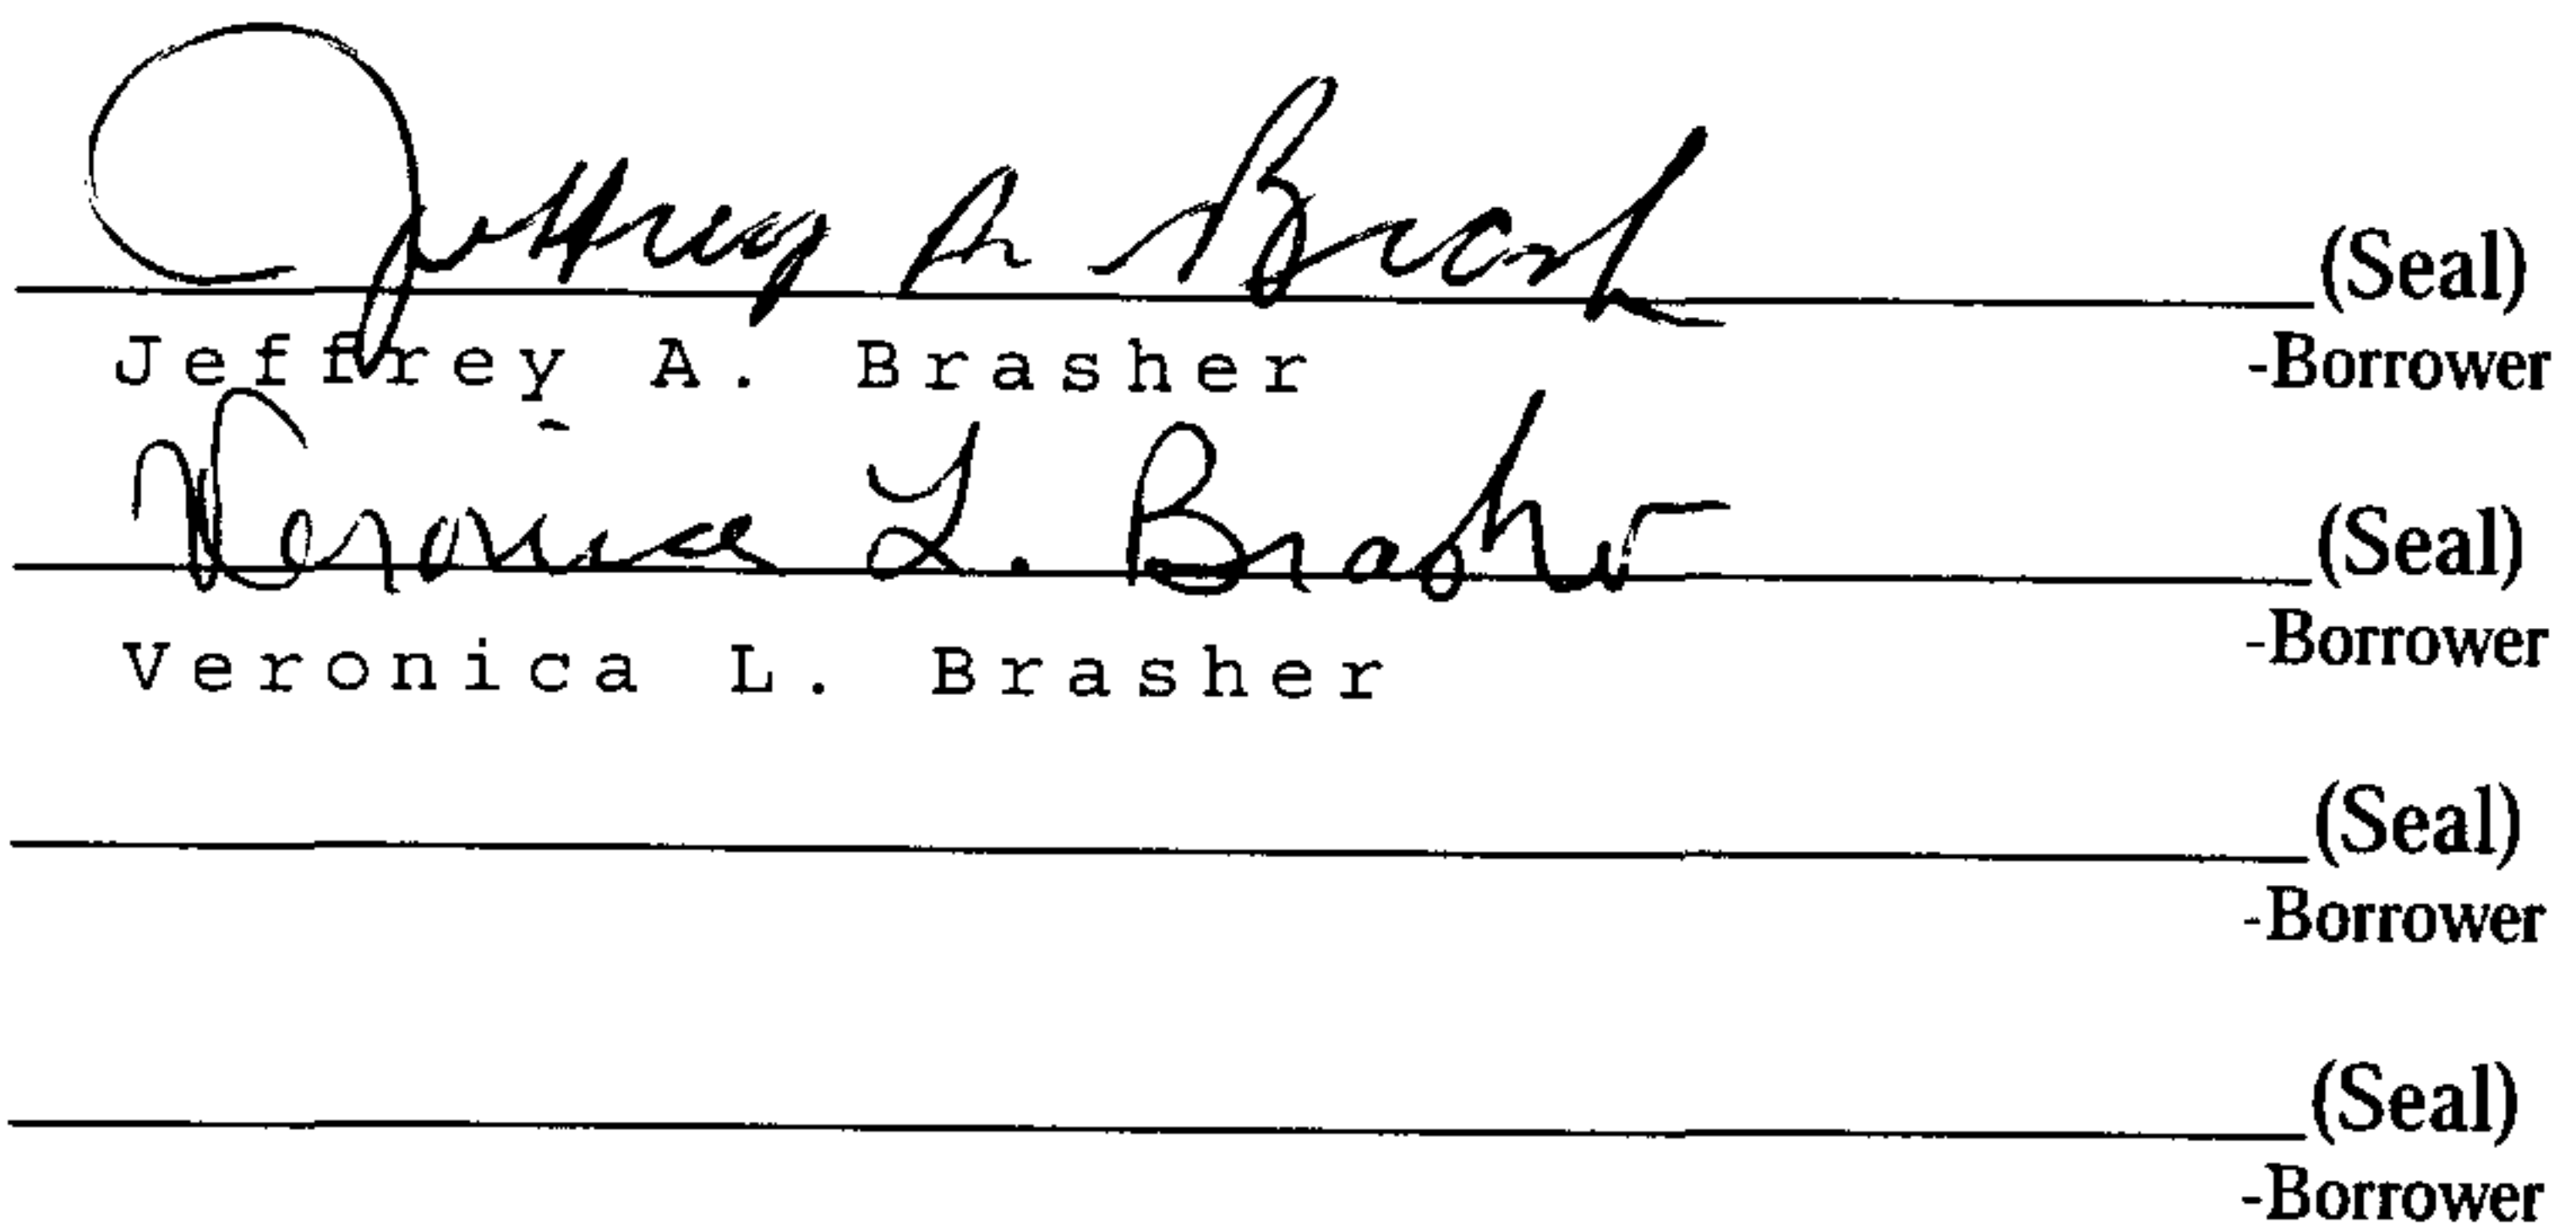 Jeffrey A. Brash (Seal)
Jeffrey A. Brasher -Borrower
Veronica L. Brasher (Seal)
Veronica L. Brasher -Borrower
(Seal)
-Borrower
(Seal)
-Borrower